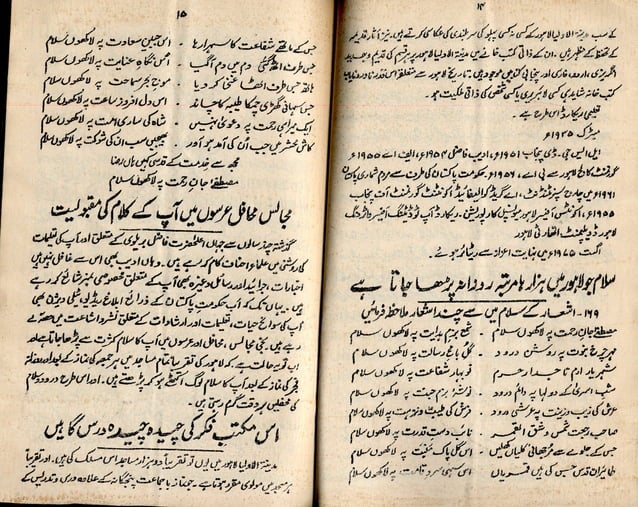 ۱۴
کے سب مدینۃ الاولیا لاہور کے کسی نہ کسی پہلو کی سربلندی کی عکاسی کرتے ہیں۔ نیز آثار قدیمہ
کے تحفظ کے مظہر ہیں۔ ان کے ذاتی کتب خانے میں مدینۃ الاولیا لاہور پر ہر قسم کی قدیم و جدید
انگریزی اردو فارسی اور پنجابی کتابیں موجود ہیں۔ تاریخ لاہور سے متعلقہ اس قدر نادر
کتب خانہ شاید ہی کسی لائبریری یا کسی شخص کی ذاتی ملکیت ہو۔
تعلیمی ریکارڈ اس طرح ہے۔
میٹرک ۱۹۲۵ء
ایل ایس جی۔ ڈی پنجاب ۱۹۵۱ء ادیب فاضل ۱۹۵۴ء، الف اے ۱۹۵۵ء
گورنمنٹ کالج لاہور سے بی اے۔ ۱۹۵۶ء حکومت پاکستان کی طرف سے مردم شماری پاکستان
۱۹۶۱ء میں چارج سپرنٹنڈنٹ۔ اے گریڈ کوالیفائیڈ اکونٹنٹ گورنمنٹ آف پنجاب
۱۹۵۵ء، اکونٹس آفیسر لاہور میونسپل کارپوریشن۔ ریکارڈ آپ ٹو ڈیٹنگ آفیسر
لاہور ڈویلپمنٹ اتھارٹی لاہور۔
اگست میں نہایت اعزاز سے ریٹائر ہوئے۔
سلام جو لاہور میں ہزارہا مرتبہ روزانہ پڑھا جاتا ہے
۱۶۹۔ اشعار کے سلام میں سے چند اشعار ملاحظہ فرمائیں
مصطفےٰ جان رحمت پہ لاکھوں سلام ۔ شمع بزم ہدایت پہ لاکھوں سلام
مہر چرخ نبوت پہ روشن درود ۔ گل باغ رسالت پہ لاکھوں سلام
شہر یار ارم تاجدار حرم ۔ نوبہار شفاعت پہ لاکھوں سلام
شب اسریٰ کے دولہا پہ دائم درود ۔ نوشۂ بزم جنت پہ لاکھوں سلام
عرش کی زیب و زینت پہ عرشی درود ۔ فرش کی طیب و نزہت پہ لاکھوں سلام
صاحب رجعت شمس و شق القمر ۔ نائب دست قدرت پہ لاکھوں سلام
جس کے جلوے سے مرجھائی کلیاں کھلیں ۔ اس گل پاک منبت پہ لاکھوں سلام
طائران قدس جس کی ہیں قمریاں ۔ اس سہی سرو قامت پہ لاکھوں سلام
۱۵
جس کے ماتھے شفاعت کا سہرا رہا ۔ اس جبین سعادت پہ لاکھوں سلام
جس طرف اٹھ گئی دم میں دم آگیا ۔ اس نگاہ عنایت پہ لاکھوں سلام
ہاتھ جس طرف اٹھا غنی کر دیا ۔ موج بحر سماحت پہ لاکھوں سلام
جس سہانی گھڑی چمکا طیبہ کا چاند ۔ اس دل افروز ساعت پہ لاکھوں سلام
ایک میرا ہی رحمت پہ دعویٰ نہیں ۔ شاہ کی ساری امت پہ لاکھوں سلام
کاش محشر میں جب ان کی آمد ہو اور ۔ بھیجیں سب ان کی شوکت پہ لاکھوں سلام
مجھ سے خدمت کے قدسی کہیں ہاں رضا
مصطفےٰ جان رحمت پہ لاکھوں سلام
مجالس محافل عرسوں میں آپ کے کلام کی مقبولیت
گزشتہ چند سالوں سے جہاں اعلحضرت فاضل بریلوی کے متعلق اور آپ کی تعلیمات
کی روشنی میں علماء احناف کام کر رہے ہیں۔ وہاں ادیب بھی اس سے غافل نہیں ہیں
اخبارات، جرائد اور رسائل وغیرہ بھی آپ کے متعلق خصوصی نمبر شائع کر رہے
ہیں۔ یہاں تک کہ اب حکومت پاکستان کے ذرائع ابلاغ ریڈیو، ٹیلی ویژن بھی
آپ کی سوانح حیات، تعلیمات اور ارشادات کے متعلق نشر و اشاعت میں حصہ لے
رہے ہیں۔ نجی مجالس، محافل اور عرسوں میں آپ کا سلام کثرت سے پڑھا جاتا ہے اور
اب تو یہ حالت ہے کہ لاہور کی تقریباً تمام مساجد میں ہر جمعہ کی نماز کے بعد اور روزانہ
فجر کی نماز کے بعد آپ کا سلام لوگ اکٹھے ہو کر پڑھتے ہیں۔ اور اس طرح درود و سلام
کی محفلیں ہر وقت گرم رہتی ہیں۔
اس مکتب فکر کی چیدہ چیدہ درس گاہیں
مدینۃ الاولیا لاہور میں یوں تو تقریباً دو ہزار مساجد اس مسلک کی ہیں۔ اور تقریباً
ہر مسجد میں مولوی مقرر ہوتا ہے۔ جو نماز با جماعت پنجگانہ کے علاوہ درس و تدریس کے